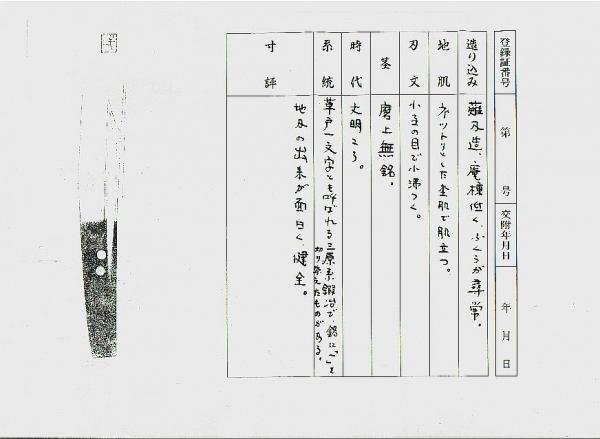 登録証番号 第 号 交附年月日 年 月 日
造り込み 薙刀造、庵棟低く、ふくらが尋常。
地肌 ネットリとした杢肌で肌立つ。
刃文 小互の目で小沸つく。
茎 磨上無銘。
時代 文明ころ。
系統 草戸一文字とも呼ばれる三原系鍛冶で、銘に「一」と
切り添えたものがある。
寸評 地刃の出来が面白く、健全。